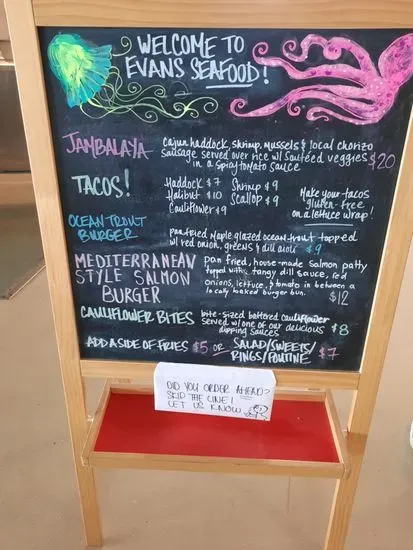 WELCOME TO
EVANS SEAFOOD!
JAMBALAYA
Cajun haddock, shrimp, mussels & local chorizo
sausage served over rice w/ sauteed veggies $20
in a spicy tomato sauce
TACOS!
Haddock $7 Shrimp $9
Halibut $10 Scallop $9
Cauliflower $9
Make your tacos
gluten-free
on a lettuce wrap!
OCEAN TROUT
BURGER
pan fried maple glazed ocean trout topped
w/ red onion, greens & dill aioli $9
MEDITERRANEAN
STYLE SALMON
BURGER
pan fried, house-made salmon patty
topped with tangy dill sauce, red
onions, lettuce, & tomato in between a
locally baked burger bun. $12
CAULIFLOWER BITES
bite-sized battered cauliflower
served w/ one of our delicious $8
dipping sauces
ADD A SIDE OF FRIES $5 or SALAD/SWEETS/
RINGS/POUTINE $7
DID YOU ORDER AHEAD?
SKIP THE LINE!
LET US KNOW